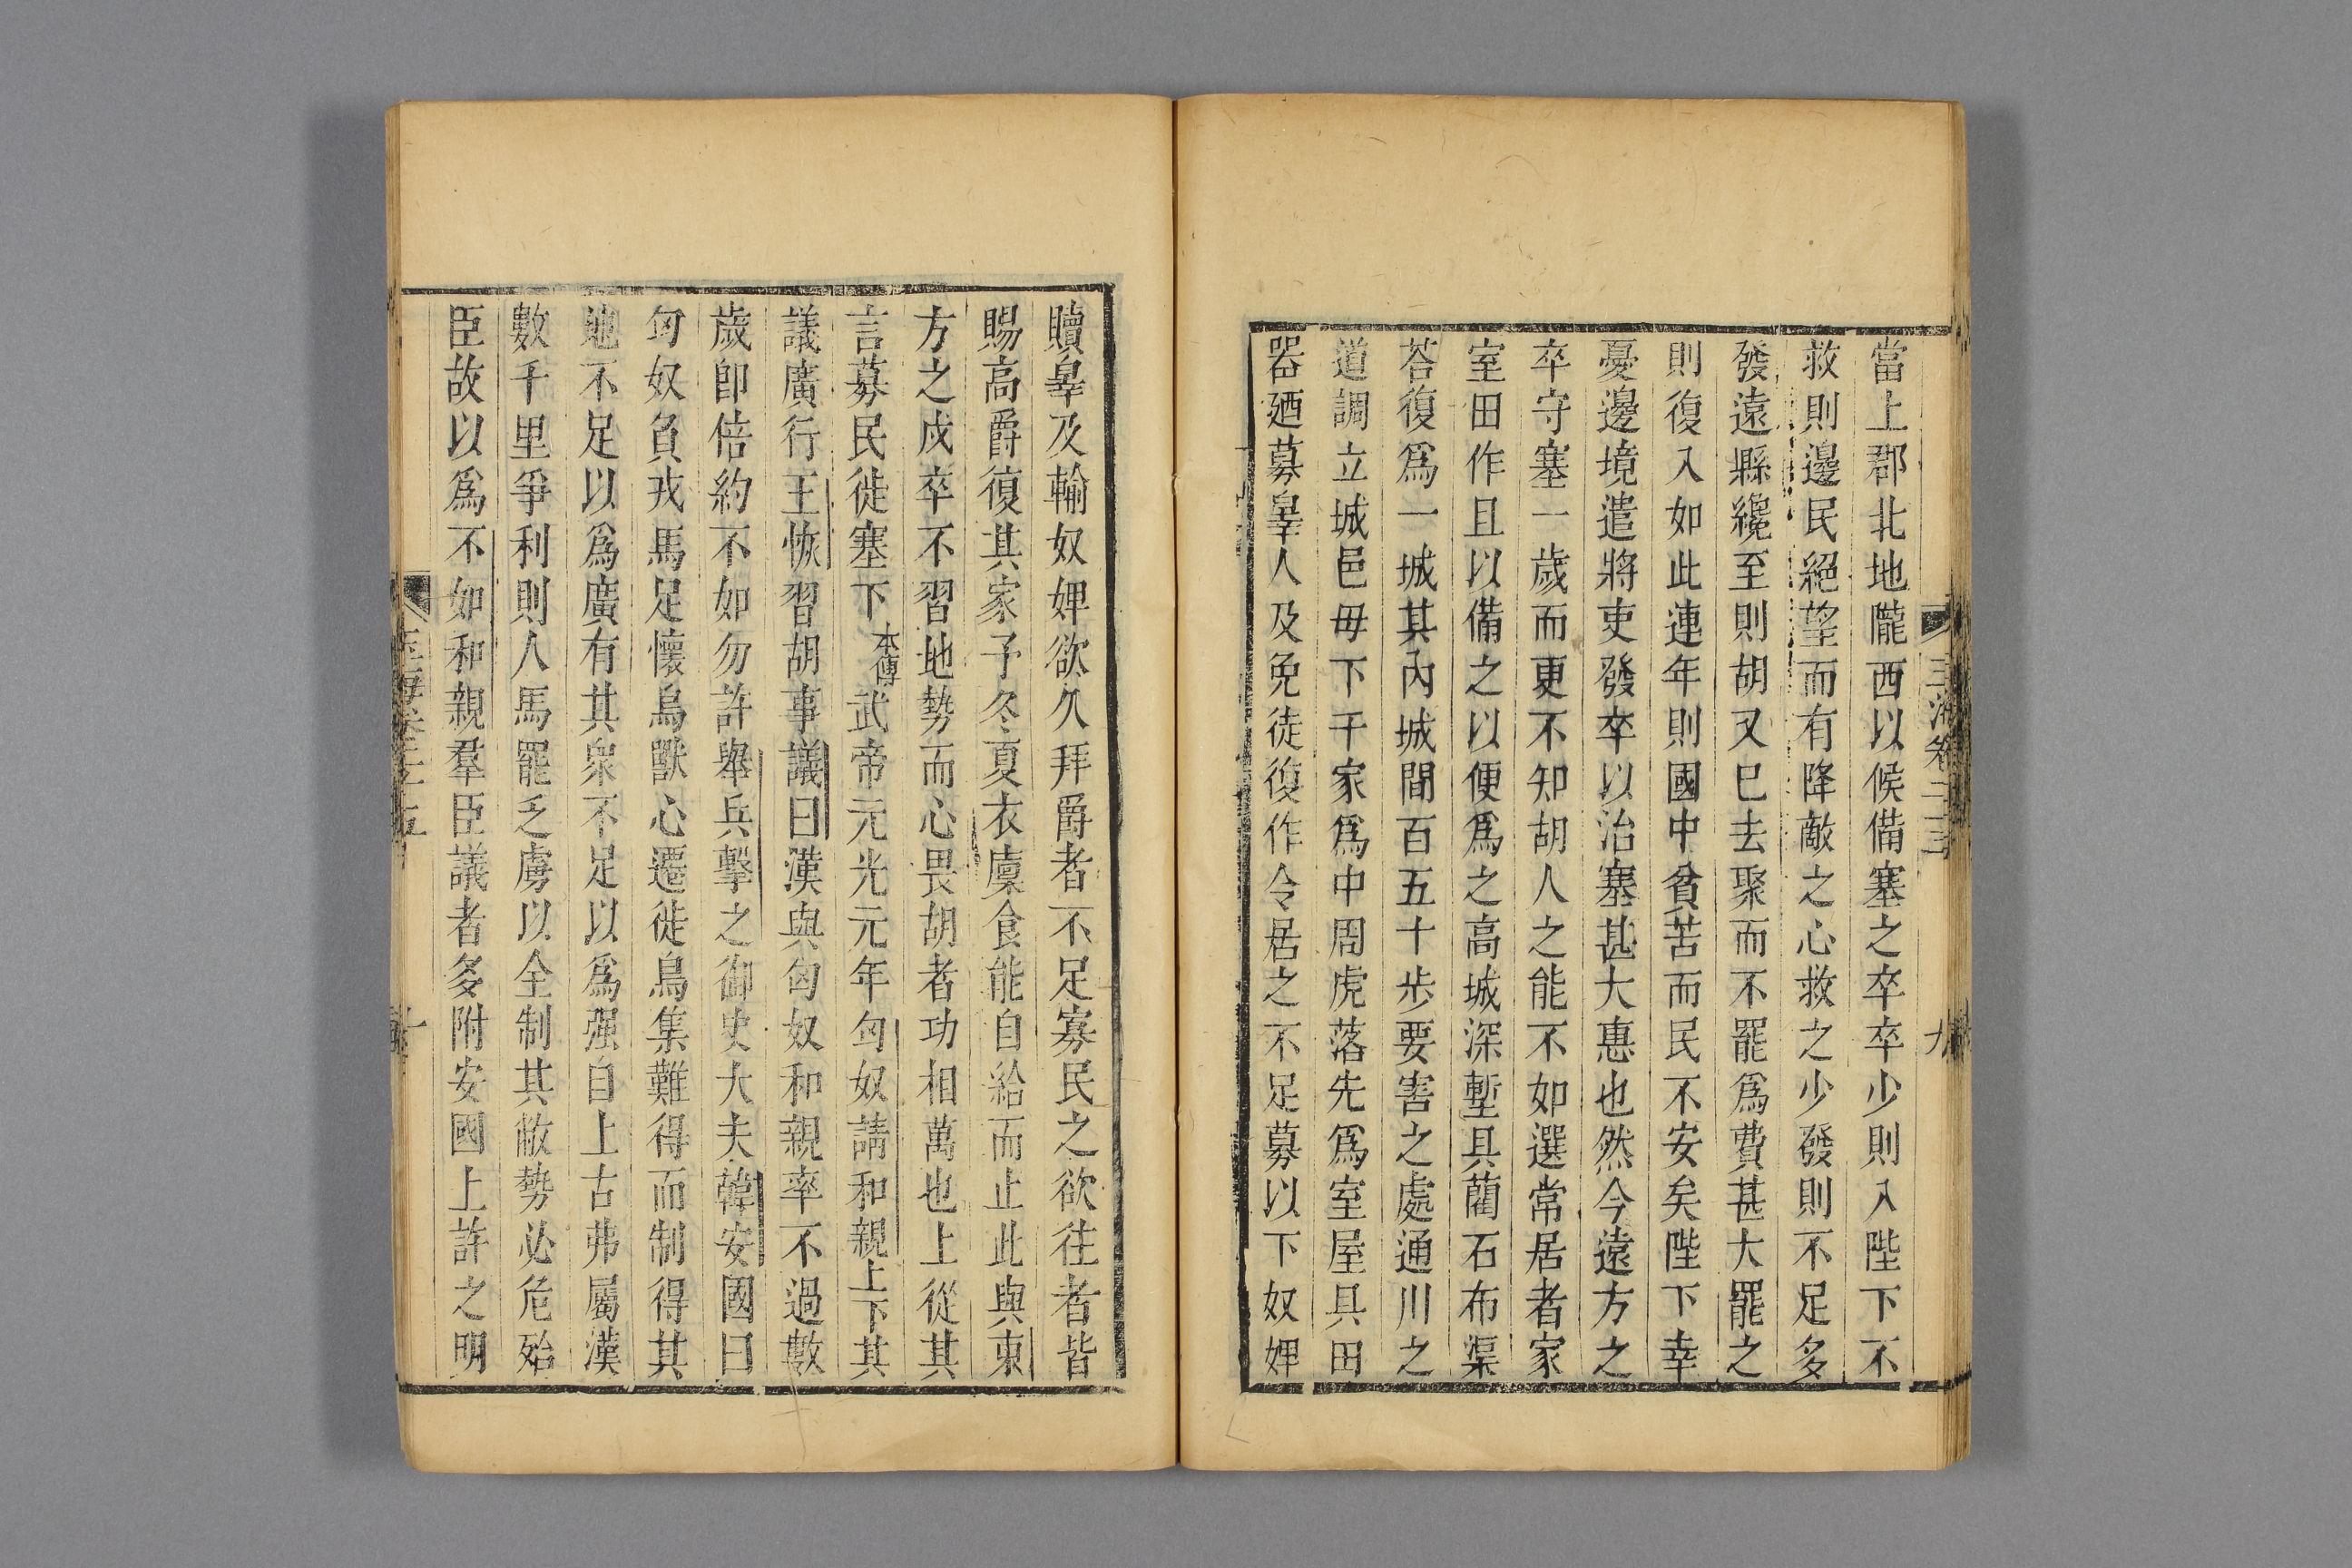 當上郡北地隴西以候備塞之卒卒少則入陛下不
救則邊民絕望而有降敵之心救之少發則不足多
發遠縣纔至則胡又巳去聚而不罷為費甚大罷之
則復入如此連年則國中貧苦而民不安矣陛下幸
憂邊境遣將吏發卒以治塞甚大惠也然今遠方之
卒守塞一歲而更不知胡人之能不如選常居者家
室田作且以備之以便爲之高城深塹具藺石布渠
荅復爲一城其內城間百五十步要害之處通川之
道調立城邑毋下千家爲中周虎落先爲室屋具田
器廼募辠人及免徒復作令居之不足募以下奴婢
贖辠及輸奴婢欲久拜爵者不足寡民之欲往者皆
賜高爵復其家予冬夏衣廩食能自給而止此與東
方之戍卒不習地勢而心畏胡者功相萬也上從其
言募民徙塞下本傳武帝元光元年匈奴請和親上下其
議廣行王恢習胡事議曰漢與匈奴和親率不過數
歲卽倍約不如勿許舉兵擊之御史大夫韓安國曰
匈奴負戎馬足懷鳥獸心遷徙鳥集難得而制得其
地不足以爲廣有其衆不足以爲强自上古弗屬漢
數千里爭利則人馬罷乏虜以全制其敝勢必危殆
臣故以爲不如和親羣臣議者多附安國上許之明